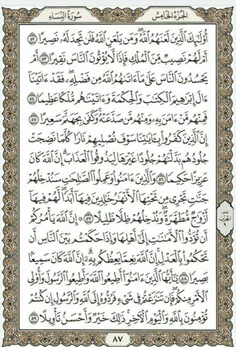 الجزء الخامس
سورة النساء
أُو۟لَٰٓئِكَ ٱلَّذِينَ لَعَنَهُمُ ٱللَّهُ وَمَن يَلْعَنِ ٱللَّهُ فَلَن تَجِدَ لَهُۥ نَصِيرًا ٥٢
أَمْ لَهُمْ نَصِيبٌ مِّنَ ٱلْمُلْكِ فَإِذًا لَّا يُؤْتُونَ ٱلنَّاسَ نَقِيرًا ٥٣ أَمْ
يَحْسُدُونَ ٱلنَّاسَ عَلَىٰ مَآ ءَاتَىٰهُمُ ٱللَّهُ مِن فَضْلِهِۦ فَقَدْ ءَاتَيْنَآ
ءَالَ إِبْرَٰهِيمَ ٱلْكِتَٰبَ وَٱلْحِكْمَةَ وَءَاتَيْنَٰهُم مُّلْكًا عَظِيمًا ٥٤
فَمِنْهُم مَّنْ ءَامَنَ بِهِۦ وَمِنْهُم مَّن صَدَّ عَنْهُ وَكَفَىٰ بِجَهَنَّمَ سَعِيرًا ٥٥
إِنَّ ٱلَّذِينَ كَفَرُوا۟ بِـَٔايَٰتِنَا سَوْفَ نُصْلِيهِمْ نَارًا كُلَّمَا نَضِجَتْ
جُلُودُهُم بَدَّلْنَٰهُمْ جُلُودًا غَيْرَهَا لِيَذُوقُوا۟ ٱلْعَذَابَ إِنَّ ٱللَّهَ كَانَ
عَزِيزًا حَكِيمًا ٥٦ وَٱلَّذِينَ ءَامَنُوا۟ وَعَمِلُوا۟ ٱلصَّٰلِحَٰتِ سَنُدْخِلُهُمْ
جَنَّٰتٍ تَجْرِى مِن تَحْتِهَا ٱلْأَنْهَٰرُ خَٰلِدِينَ فِيهَآ أَبَدًا لَّهُمْ فِيهَآ
أَزْوَٰجٌ مُّطَهَّرَةٌ وَنُدْخِلُهُمْ ظِلًّا ظَلِيلًا ٥٧ إِنَّ ٱللَّهَ يَأْمُرُكُمْ
أَن تُؤَدُّوا۟ ٱلْأَمَٰنَٰتِ إِلَىٰٓ أَهْلِهَا وَإِذَا حَكَمْتُم بَيْنَ ٱلنَّاسِ أَن
تَحْكُمُوا۟ بِٱلْعَدْلِ إِنَّ ٱللَّهَ نِعِمَّا يَعِظُكُم بِهِۦٓ إِنَّ ٱللَّهَ كَانَ سَمِيعًۢا
بَصِيرًا ٥٨ يَٰٓأَيُّهَا ٱلَّذِينَ ءَامَنُوٓا۟ أَطِيعُوا۟ ٱللَّهَ وَأَطِيعُوا۟ ٱلرَّسُولَ وَأُو۟لِى
ٱلْأَمْرِ مِنكُمْ فَإِن تَنَٰزَعْتُمْ فِى شَىْءٍ فَرُدُّوهُ إِلَى ٱللَّهِ وَٱلرَّسُولِ إِن كُنتُمْ
تُؤْمِنُونَ بِٱللَّهِ وَٱلْيَوْمِ ٱلْـَٔاخِرِ ذَٰلِكَ خَيْرٌ وَأَحْسَنُ تَأْوِيلًا ٥٩
٨٧